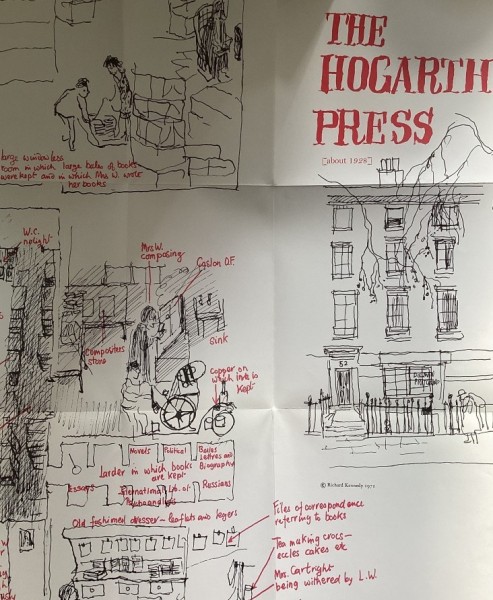 THE
HOGARTH
PRESS
[about 1928]
large windowless
room in which large bales of books
were kept and in which Mrs W. wrote
her books
W.C.
Mrs W.
composing
Caslon O.F.
Sink
Compositors
stone
copper on
which ink is
kept
52
Novels
Political
Belles
Lettres and
Biography
Larder in which books
are kept
Essays
International Lib. of
Psychoanalysis
Russians
Old fashioned dresser - leaflets and legers
© Richard Kennedy 1972
Files of correspondence
referring to books
Tea making crocs -
eccles cakes etc
Mrs. Cartright
being withered by L.W.